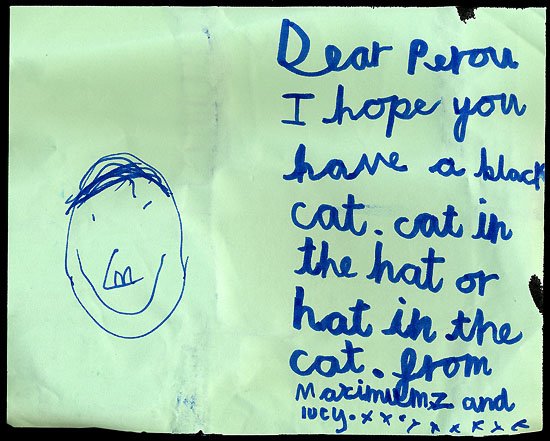 Dear Perou
I hope you
have a black
cat. cat in
the hat or
hat in the
cat. from
Maximumz and
lucy. x x . x x x x x x